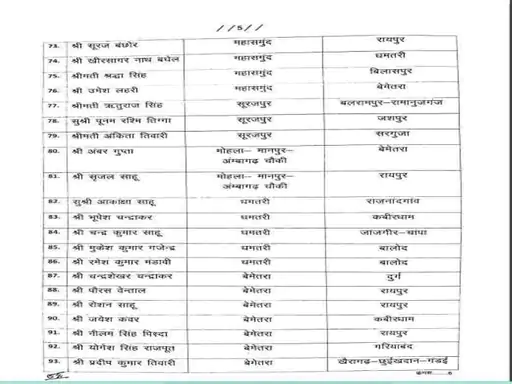 //5//
73. श्री सूरज बंछोर महासमुंद रायपुर
74. श्री खीरसागर नाथ बघेल महासमुंद धमतरी
75. श्रीमती श्रद्धा सिंह महासमुंद बिलासपुर
76. श्री उमेश लहरी महासमुंद बेमेतरा
77. श्रीमती ऋतुराज सिंह सूरजपुर बलरामपुर-रामानुजगंज
78. सुश्री पूनम रश्मि तिग्गा सूरजपुर जशपुर
79. श्रीमती अंकिता तिवारी सूरजपुर सरगुजा
80. श्री अंबर गुप्ता मोहला- मानपुर- बेमेतरा
अंम्बागढ़ चौकी
81. श्री सृजल साहू मोहला- मानपुर- रायपुर
अंम्बागढ़ चौकी
82. सुश्री आकांक्षा साहू धमतरी राजनांदगांव
83. श्री भूपेश चन्द्राकर धमतरी कबीरधाम
84. श्री चन्द्र कुमार साहू धमतरी जांजगीर-चांपा
85. श्री मुकेश कुमार गजेन्द्र धमतरी बालोद
86. श्री रमेश कुमार मंडावी धमतरी बालोद
87. श्री चन्द्रशेखर चन्द्राकर बेमेतरा दुर्ग
88. श्री पौरस वेन्ताल बेमेतरा रायपुर
89. श्री रोशन साहू बेमेतरा रायपुर
90. श्री जयेश कंवर बेमेतरा कबीरधाम
91. श्री नीलम सिंह पिस्दा बेमेतरा रायपुर
92. श्री योगेश सिंह राजपूत बेमेतरा गरियाबंद
93. श्री प्रदीप कुमार तिवारी बेमेतरा खैरागढ़-छुईखदान-गंडई
6